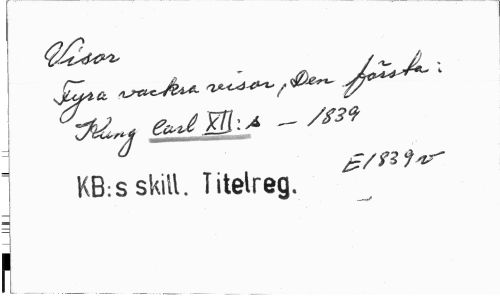 Visor
Fyra vackra visor, Den första:
Kung Carl XII:s – 1839
E1839v
KB:s skill. Titelreg.